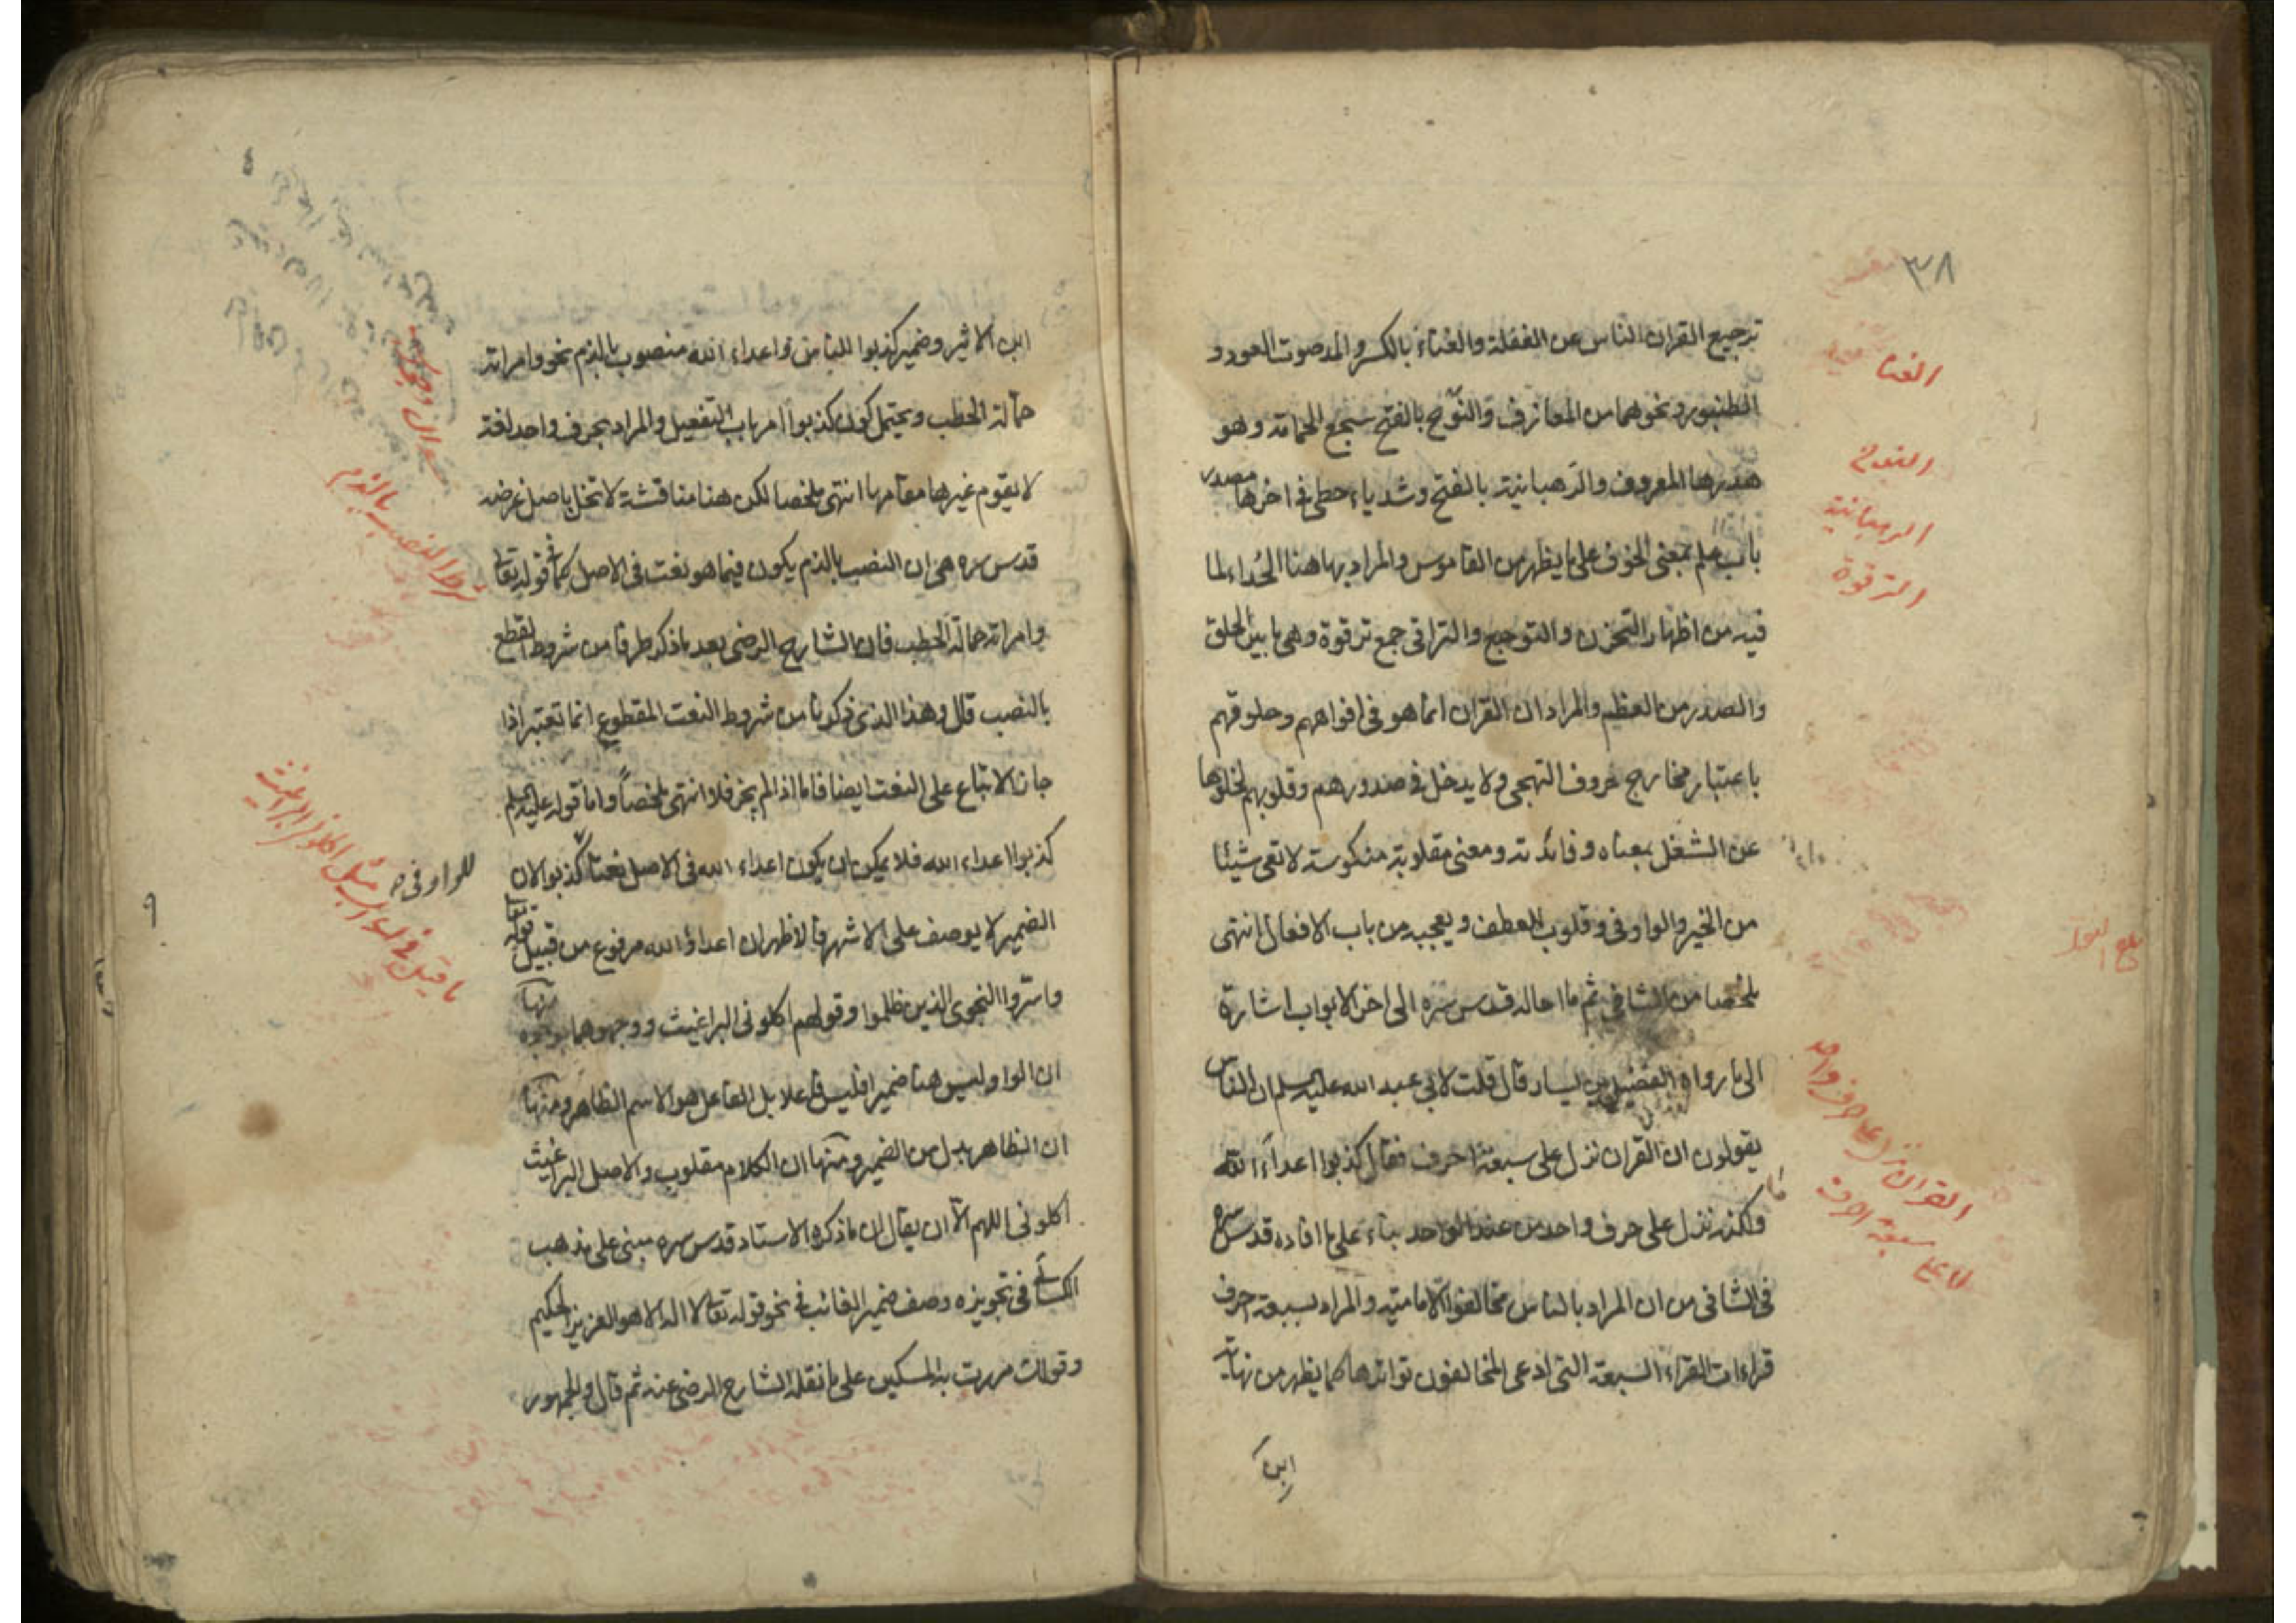 ٣٨
ترجيع القران الناس عن الغفلة والغناء بالكسر والمد صوت العود و
الطنبور ونحوهما من المعازف والنوح بالفتح سجع الحمامة وهو
هدرها المعروف والرهبانية بالفتح وشد ياء حطى فى اخرها مصدر
باب علم بمعنى الخوف على ما يظهر من القاموس والمراد بها هنا الحداء لما
فيه من اظهار التحزن والتوجع والتراقى جمع ترقوة وهى ما بين الحلق
والصدر من العظم والمراد ان القران انما هو فى افواههم وحلوقهم
باعتبار مخارج حروف التهجى ولا يدخل فى صدورهم وقلوبهم لخلوها
عن الشغل بمعناه وفائدته ومعنى مقلوبة منكوسة لا تعى شيئا
من الخير والواو فى وقلوب للعطف ويعجبه من باب الافعال انتهى
ملخصا من الشافى ثم ما احاله قدس سره الى اخر الابواب اشارة
الى ما رواه الفضيل بن يسار قال قلت لابى عبد الله عليه السلم ان الناس
يقولون ان القران نزل على سبعة احرف فقال كذبوا اعداء الله
ولكنه نزل على حرف واحد من عند الواحد بناء على ما افاده قدس سره
فى الشافى من ان المراد بالناس مخالفوا الامامية والمراد بسبعة احرف
قراءات القراء السبعة التى ادعى المخالفون تواترها كما يظهر من نهاية
ابن
الغنا
النوح
الرهبانية
الترقوة
القران نزل على حرف واحد
لا على سبعة احرف
ابن الاثير وضمير كذبوا للناس واعداء الله منصوب بالذم نحو وامراته
حمالة الحطب ويحتمل كون كذبوا امر باب التفعيل والمراد بحرف واحد لغة
لا يقوم غيرها مقامها انتهى ملخصا لكن هنا مناقشة لا تخل باصل غرضه
قدس سره هى ان النصب بالذم يكون فيما هو نعت فى الاصل كما فى قوله تعالى
وامراته حمالة الحطب فان الشارح الرضى بعد ما ذكر طرفا من شروط القطع
بالنصب قال وهذا الذى ذكرنا من شروط النعت المقطوع انما تعتبر اذا
جاز الاتباع على النعت ايضا فاما اذا لم يجز فلا انتهى ملخصاً واما قوله عليه السلم
كذبوا اعداء الله فلا يمكن ان يكون اعداء الله فى الاصل نعتا لكذبوا لان
الضمير لا يوصف على الاشهر فالاظهر ان اعداؤ الله مرفوع من قبيل قوله تعالى
واسروا النجوى الذين ظلموا وقولهم اكلونى البراغيث ووجهوهما بوجوه منها
ان الواو ليس هنا ضميرا فليس فاعلا بل الفاعل هو الاسم الظاهر ومنها
ان الظاهر بدل من الضمير ومنها ان الكلام مقلوب والاصل البراغيث
اكلونى اللهم الا ان يقال ان ما ذكره الاستاد قدس سره مبنى على مذهب
الكسائى فى تجويزه وصف ضمير الغائب فى نحو قوله تعالى لا اله الا هو العزيز الحكيم
وقولك مررت به المسكين على ما نقله الشارح الرضى عنه ثم قال والجمهور
شرط النصب بالذم
للواو فى
ما قيل فى
مثل اكلونى البراغيث